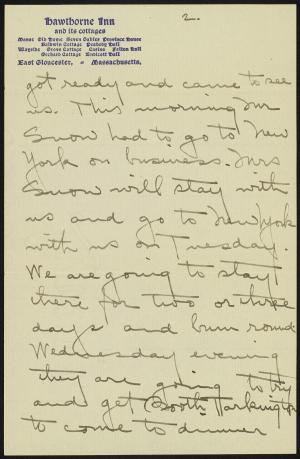 Hawthorne Inn
and its cottages
Manse Old Home Seven Gables Province House
Baldwin Cottage Peabody Hall
Wayside Grove Cottage Casino Fellon Hall
Orchard Cottage Endicott Hall
East Gloucester, Massachusetts.
2.
got ready and came to see
us. This morning Mr
Snow had to go to New
York on business. Mrs
Snow will stay with
us and go to New York
with us on Tuesday.
We are going to stay
there for two or three
days and bum round.
Wednesday evening
they are going to try
and get Booth Tarkington
to come to dinner